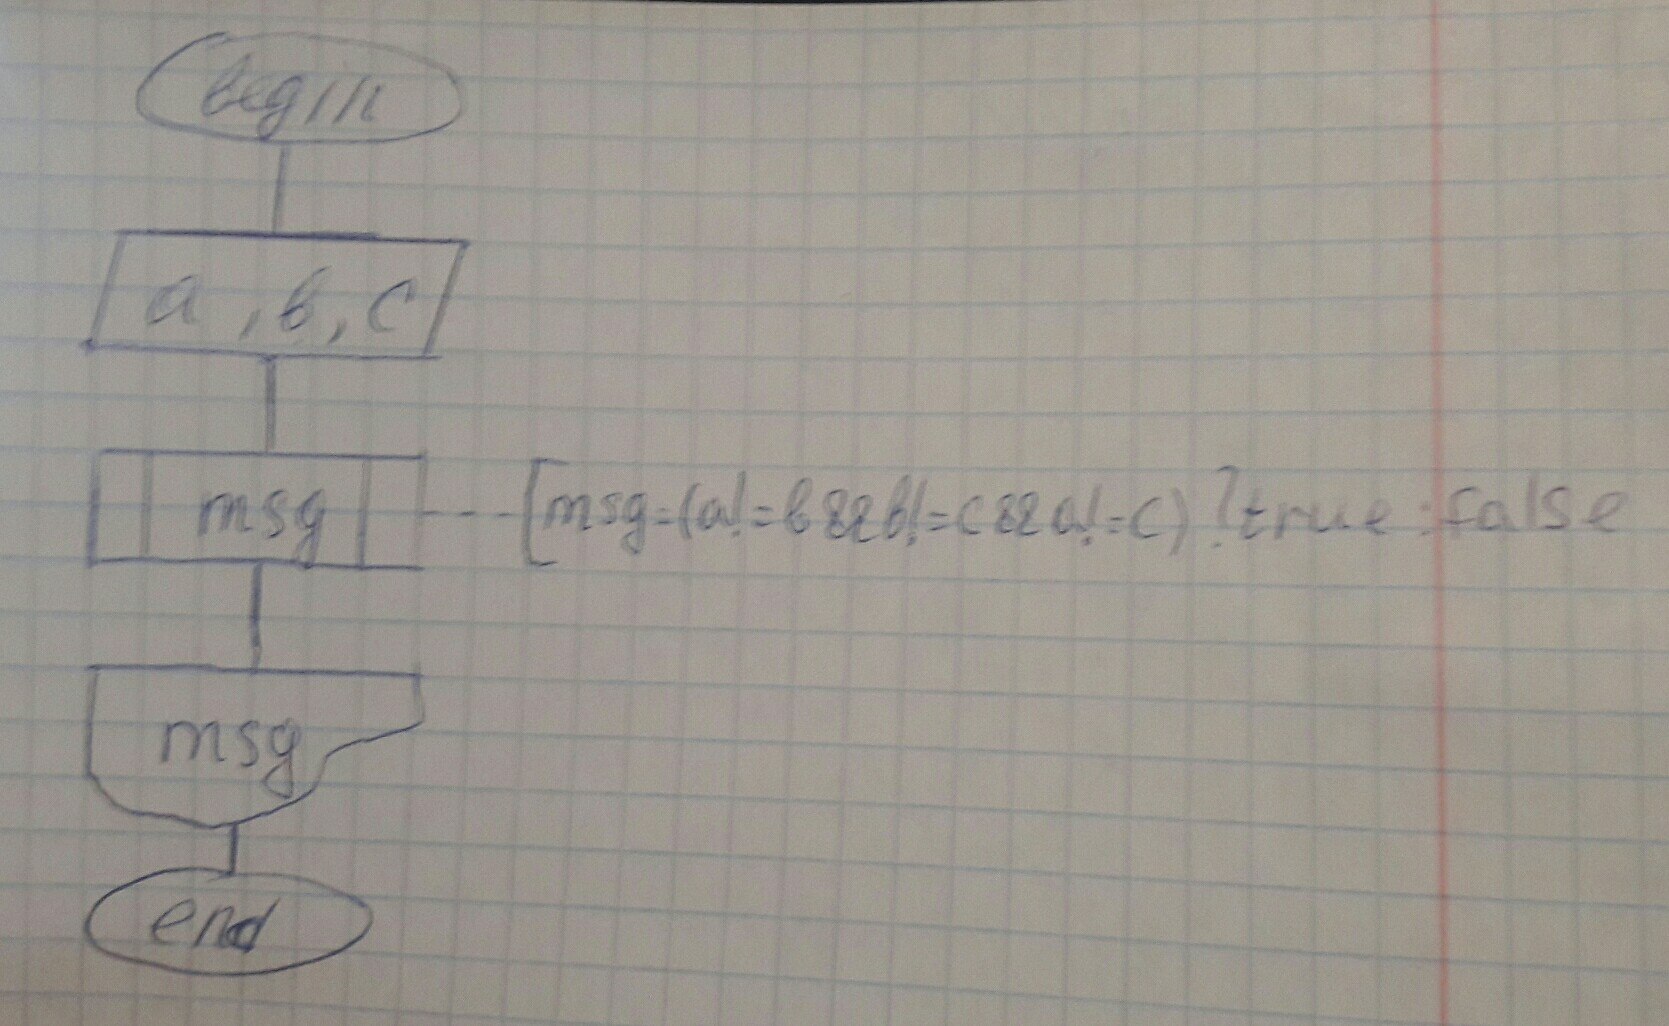 begin
a, b, c
msg
[msg=(a!=b&&b!=c&&a!=c)?true:false
msg
end